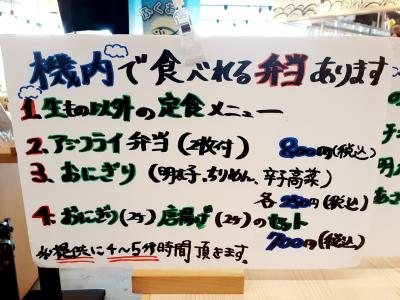 ふくお
機内で食べれる弁当あります
1. 生もの以外の定食メニュー
2. アジフライ弁当(2枚付) 800円(税込)
3. おにぎり(明太子、ちりめん、辛子高菜)
各250円(税込)
4. おにぎり(2ケ)唐揚げ(2ケ)のセット
700円(税込)
※提供に4〜5分時間頂きます。